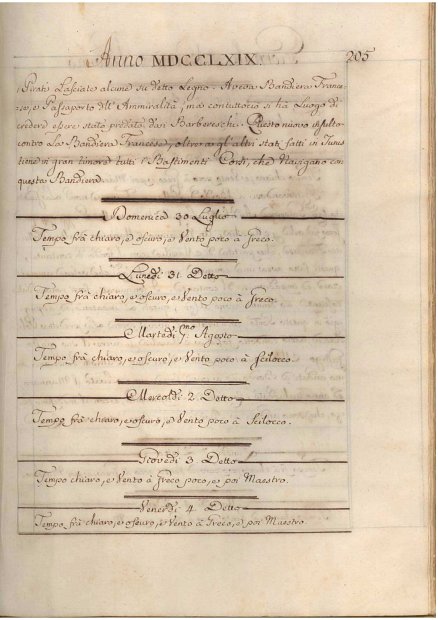 Anno MDCCLXIX
205
Pirati Lasciate alcune su detto Legno. Aveva Bandiera France-
se, e Passaporto dell' Ammiralità, ma contuttocio si hà Luogo di
credere essere stato predato dai Barbereschi. Questo nuovo insulto
contro La Bandiera Francese, oltre a gl'altri stati fatti in Tunis
tiene in gran timore tutti i Bastimenti Corsi, che Navigano con
questa Bandiera.
Domenica 30 Luglio
Tempo frà chiaro, e oscuro, e Vento poco à Greco.
Lunedi 31. Detto
Tempo frà chiaro, e oscuro, e Vento poco à Greco.
Martedi p.mo Agosto
Tempo frà chiaro, e oscuro, e Vento poco à Scilocco.
Mercoldi 2 Detto
Tempo frà chiaro, e oscuro, e Vento poco à Scilocco.
Giovedi 3. Detto
Tempo chiaro, e Vento à Greco poco, e poi Maestro.
Venerdi 4. Detto
Tempo frà chiaro, e oscuro, e Vento à Greco, e poi Maestro.